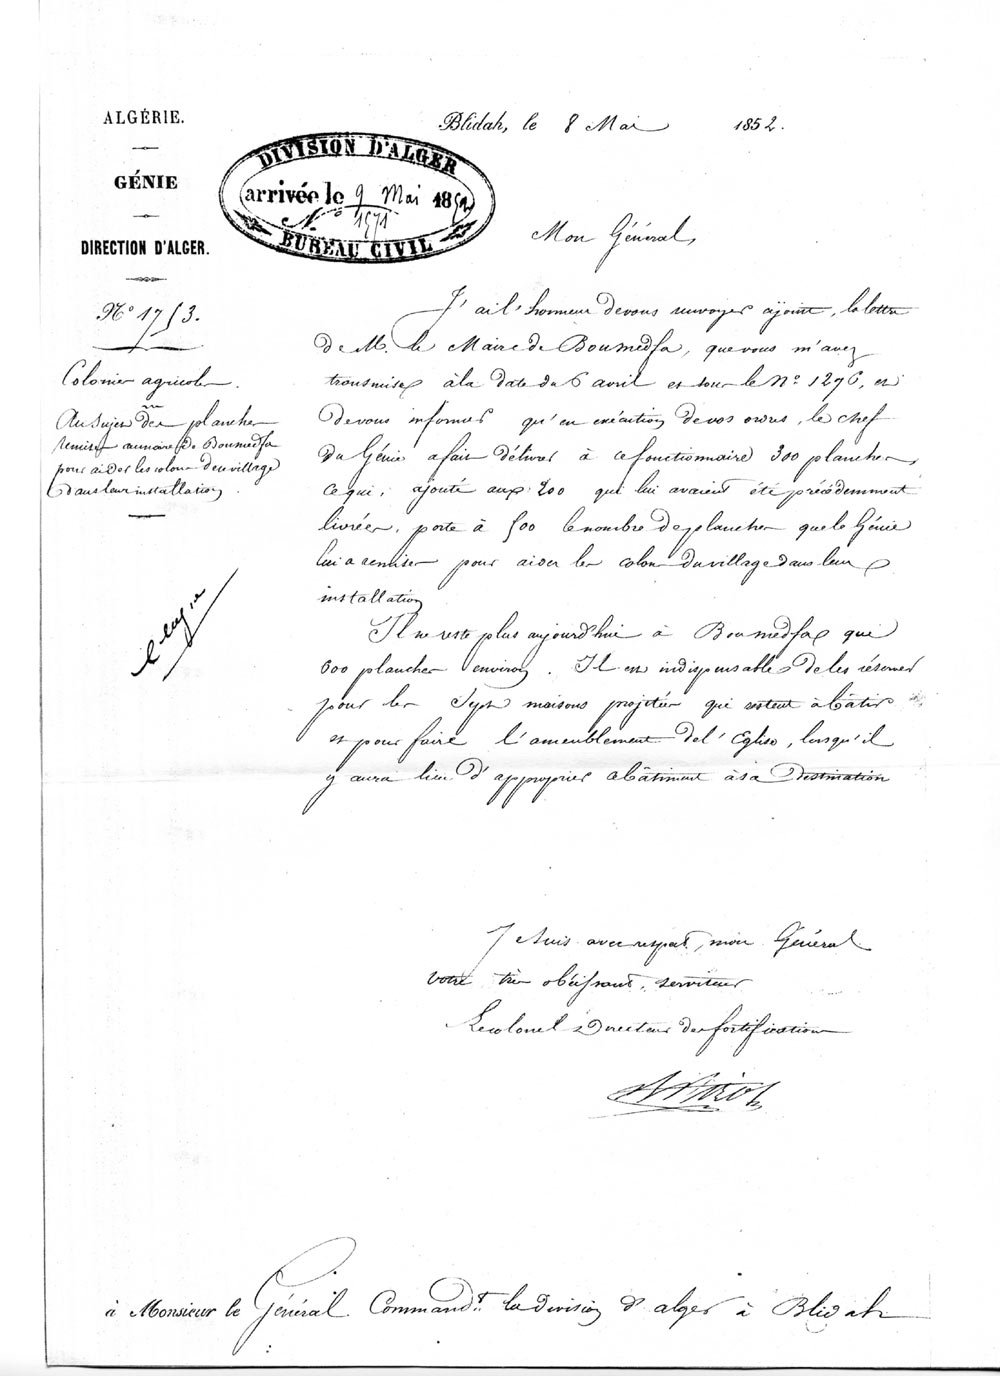 ALGÉRIE.
GÉNIE
DIRECTION D'ALGER.
N° 1753.
Colonies agricoles.
Au sujet des planches
remises au maire de Boumedfa
pour aider les colons de ce village
dans leur installation.
DIVISION D'ALGER
arrivée le 9 Mai 1852
N° 1571
BUREAU CIVIL
Blidah, le 8 Mai 1852.
Mon Général,
J'ai l'honneur de vous renvoyer ci-joint, la lettre
de M. le Maire de Boumedfa, que vous m'avez
transmise à la date du 6 avril et sous le N° 1276, et
de vous informer qu'en exécution de vos ordres, le chef
du Génie a fait délivrer à ce fonctionnaire 300 planches,
ce qui, ajouté aux 200 qui lui avaient été précédemment
livrées, porte à 500 le nombre de planches que le Génie
lui a remises pour aider les colons du village dans leur
installation
Il ne reste plus aujourd'hui à Boumedfa que
600 planches environ. Il est indispensable de les réserver
pour les sept maisons projetées qui restent à bâtir
et pour faire l'ameublement de l'Eglise, lorsqu'il
y aura lieu d'approprier ce bâtiment à sa destination
Je suis avec respect, mon Général
votre très obéissant serviteur
Le colonel Directeur des fortifications
à Monsieur le Général Commandt. la division d'alger à Blidah